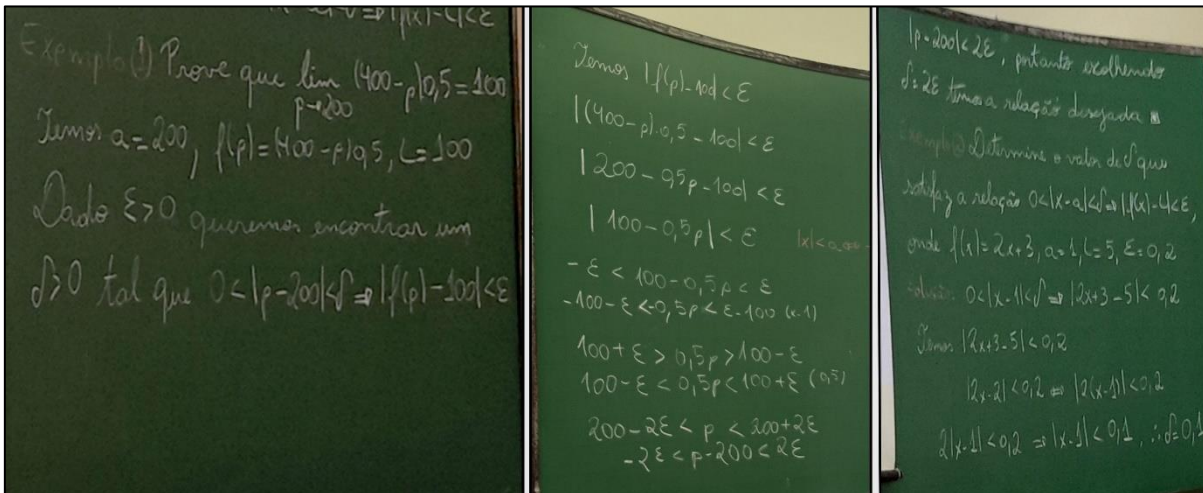 |f(x)-L|<ε
Exemplo ① Prove que lim (400-p)0,5=100
p→200
Temos a=200, f(p)=(400-p)0,5, L=100
Dado ε>0 queremos encontrar um
δ>0 tal que 0<|p-200|<δ ⇒ |f(p)-100|<ε
Temos |f(p)-100|<ε
|(400-p)·0,5-100|<ε
|200-0,5p-100|<ε
|100-0,5p|<ε |x|<a
-ε<100-0,5p<ε
-100-ε<-0,5p<ε-100 (x-1)
100+ε>0,5p>100-ε
100-ε<0,5p<100+ε (0,5)
200-2ε<p<200+2ε
-2ε<p-200<2ε
|p-200|<2ε, portanto escolhendo
δ=2ε temos a relação desejada ■
Exemplo ② Determine o valor de δ que
satisfaz a relação 0<|x-a|<δ ⇒ |f(x)-L|<ε,
onde f(x)=2x+3, a=1, L=5, ε=0,2
Solução 0<|x-1|<δ ⇒ |2x+3-5|<0,2
Temos |2x+3-5|<0,2
|2x-2|<0,2 ⇔ |2(x-1)|<0,2
2|x-1|<0,2 ⇒ |x-1|<0,1, ∴ δ=0,1